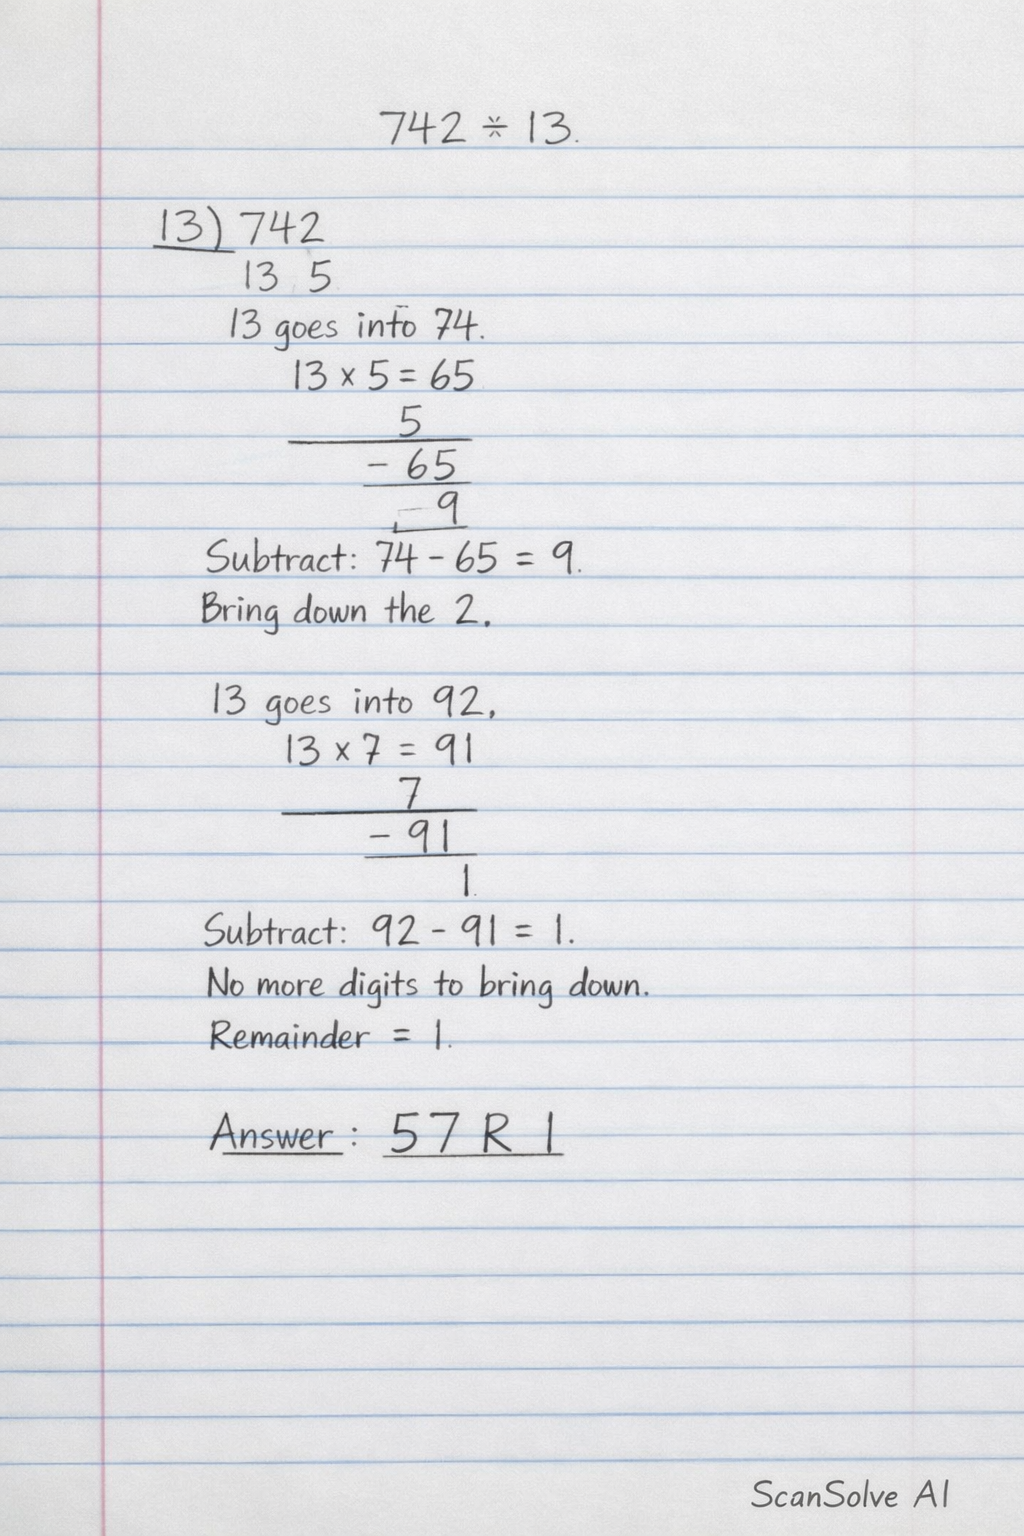 742 ÷ 13.
13) 742
13 5
13 goes into 74.
13 × 5 = 65
5
- 65
- 9
Subtract: 74 - 65 = 9.
Bring down the 2.
13 goes into 92,
13 × 7 = 91
7
- 91
1.
Subtract: 92 - 91 = 1.
No more digits to bring down.
Remainder = 1.
Answer: 57 R 1
ScanSolve AI